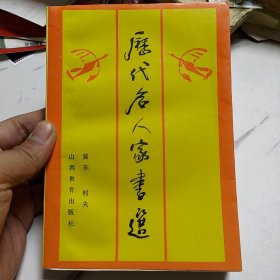 歷代名人家書選
冀东 村夫
山西教育出版社